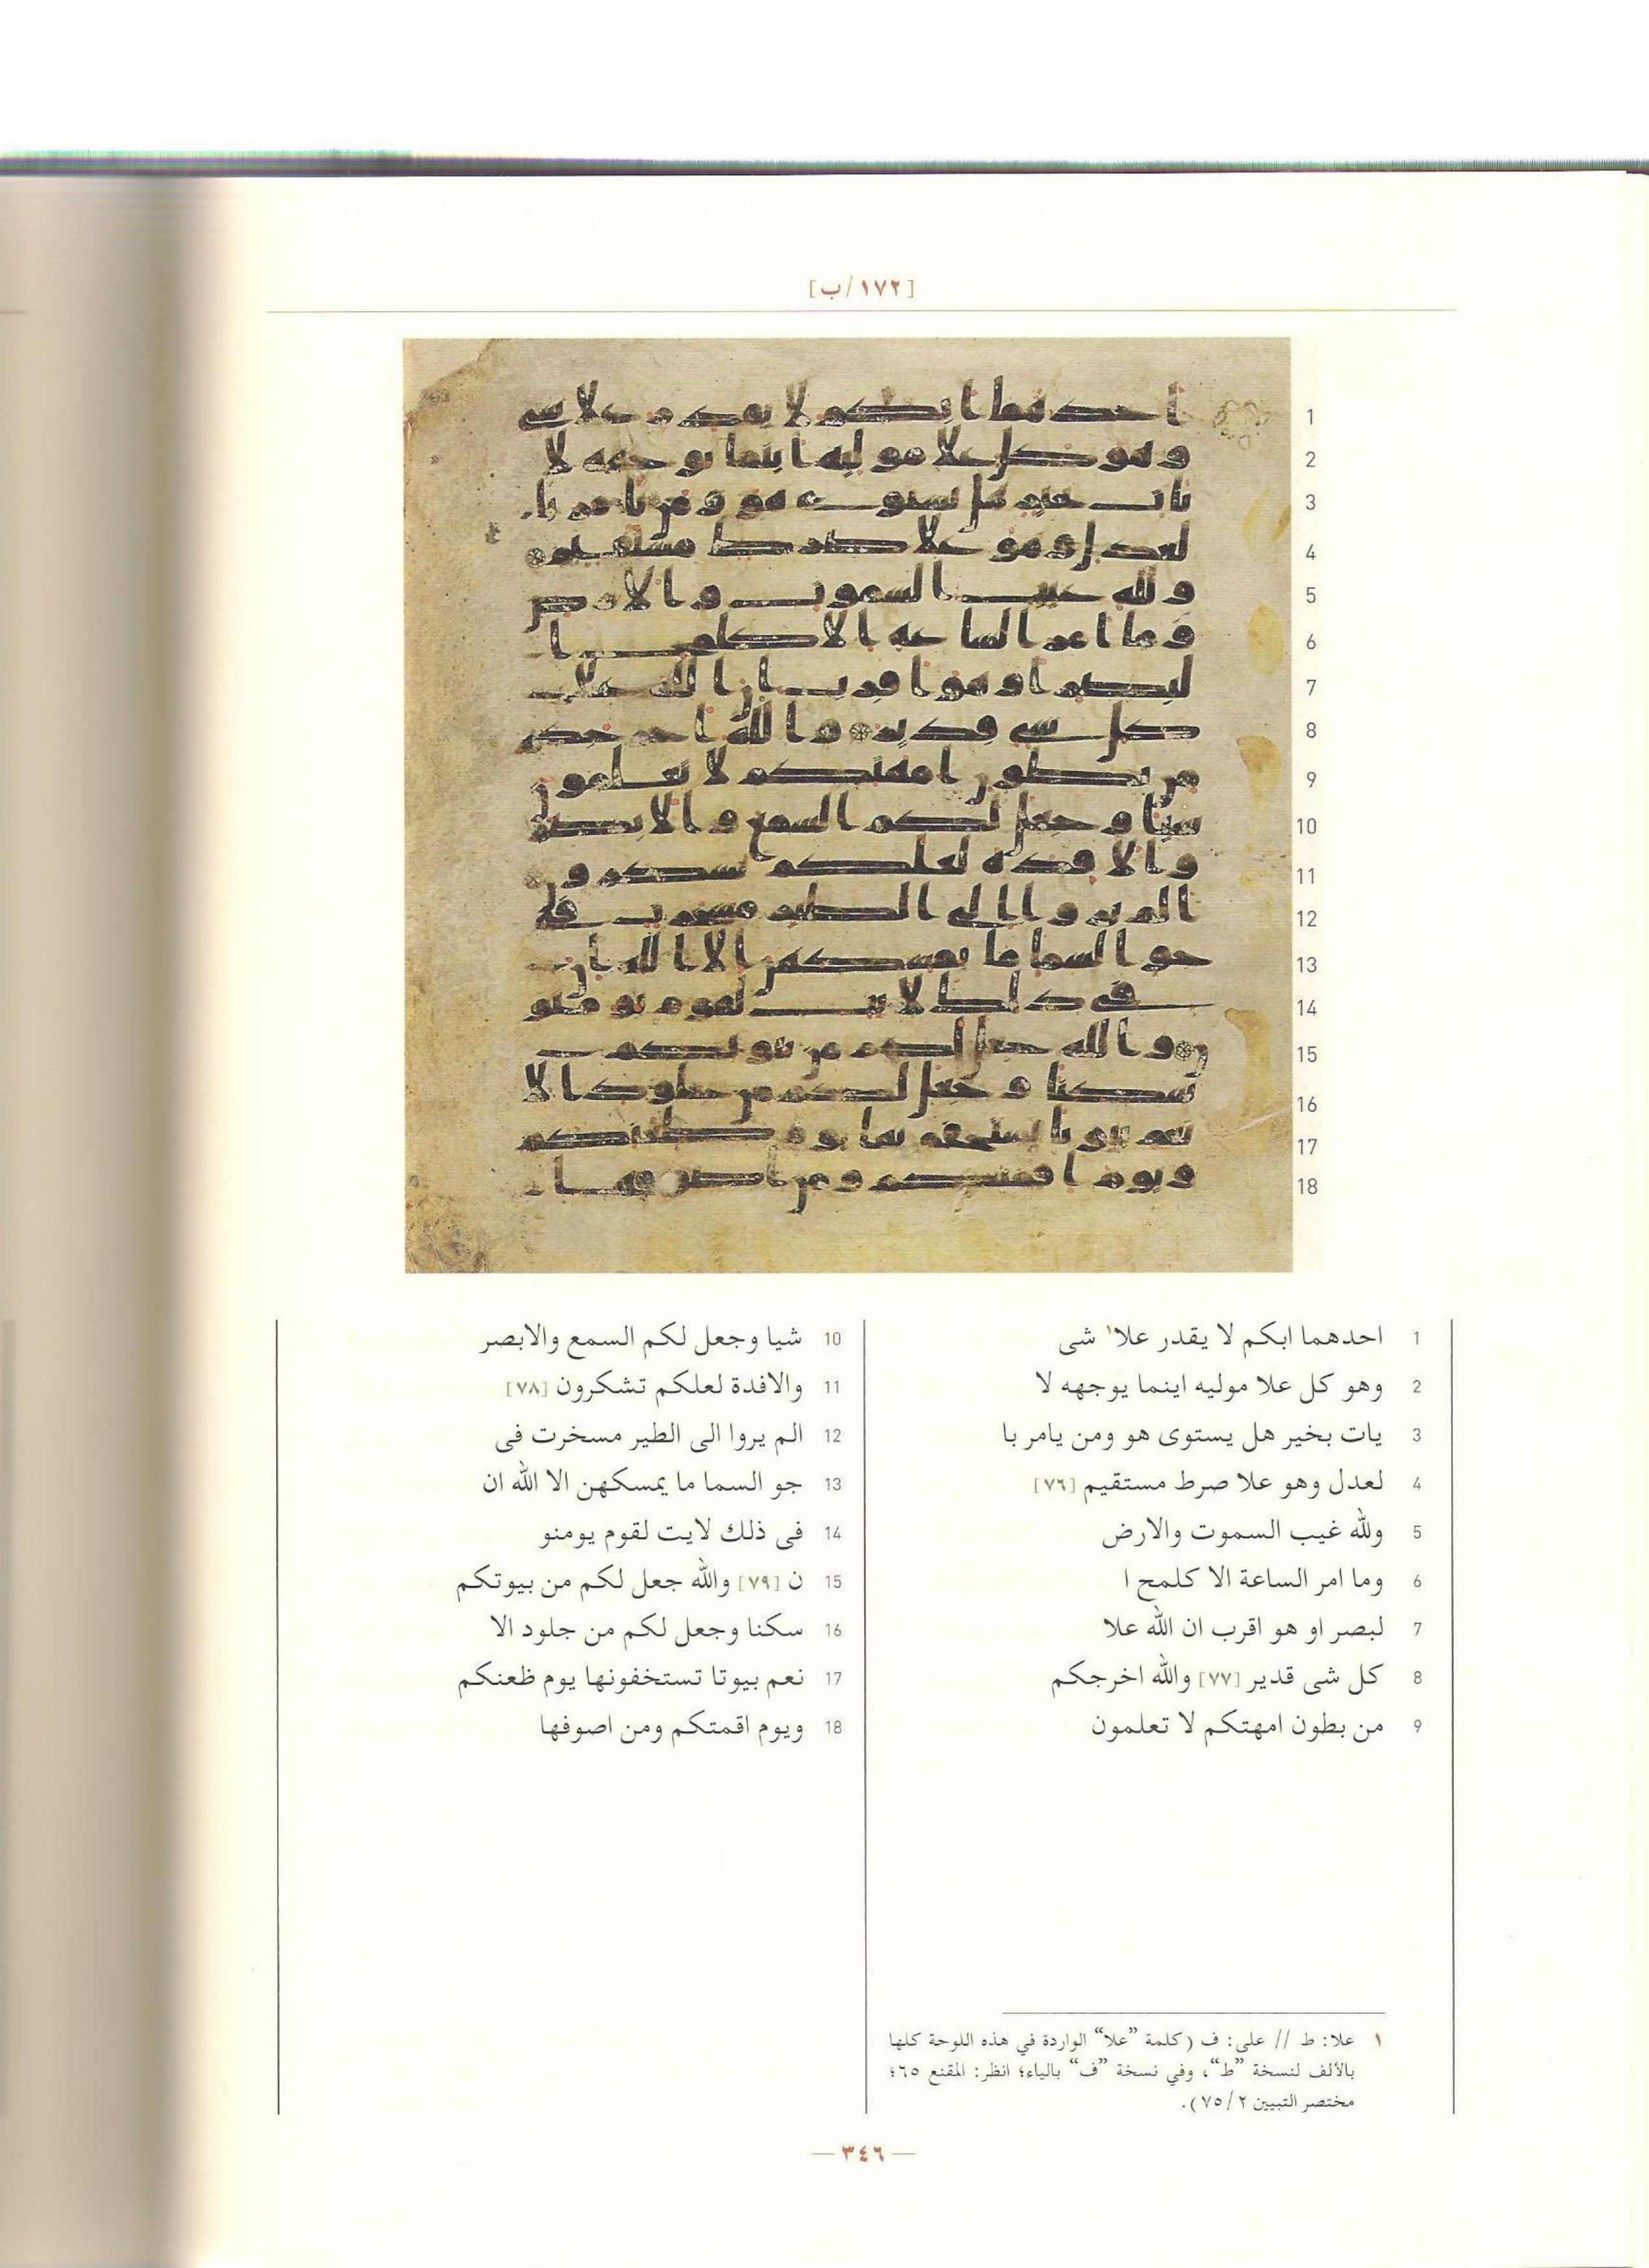 [١٧٢/ب]
1 احدهما ابكم لا يقدر علا١ شى
2 وهو كل علا موليه اينما يوجهه لا
3 يات بخير هل يستوى هو ومن يامر با
4 لعدل وهو علا صرط مستقيم [٧٦]
5 ولله غيب السموت والارض
6 وما امر الساعة الا كلمح ا
7 لبصر او هو اقرب ان الله علا
8 كل شى قدير [٧٧] والله اخرجكم
9 من بطون امهتكم لا تعلمون
10 شيا وجعل لكم السمع والابصر
11 والافدة لعلكم تشكرون [٧٨]
12 الم يروا الى الطير مسخرت فى
13 جو السما ما يمسكهن الا الله ان
14 فى ذلك لايت لقوم يومنو
15 ن [٧٩] والله جعل لكم من بيوتكم
16 سكنا وجعل لكم من جلود الا
17 نعم بيوتا تستخفونها يوم ظعنكم
18 ويوم اقمتكم ومن اصوفها
١ علا: ط // على: ف (كلمة ”علا“ الواردة في هذه اللوحة كلها
بالألف لنسخة ”ط“، وفي نسخة ”ف“ بالياء؛ انظر: المقنع ٦٥؛
مختصر التبيين ٧٥/٢).
— ٣٤٦ —